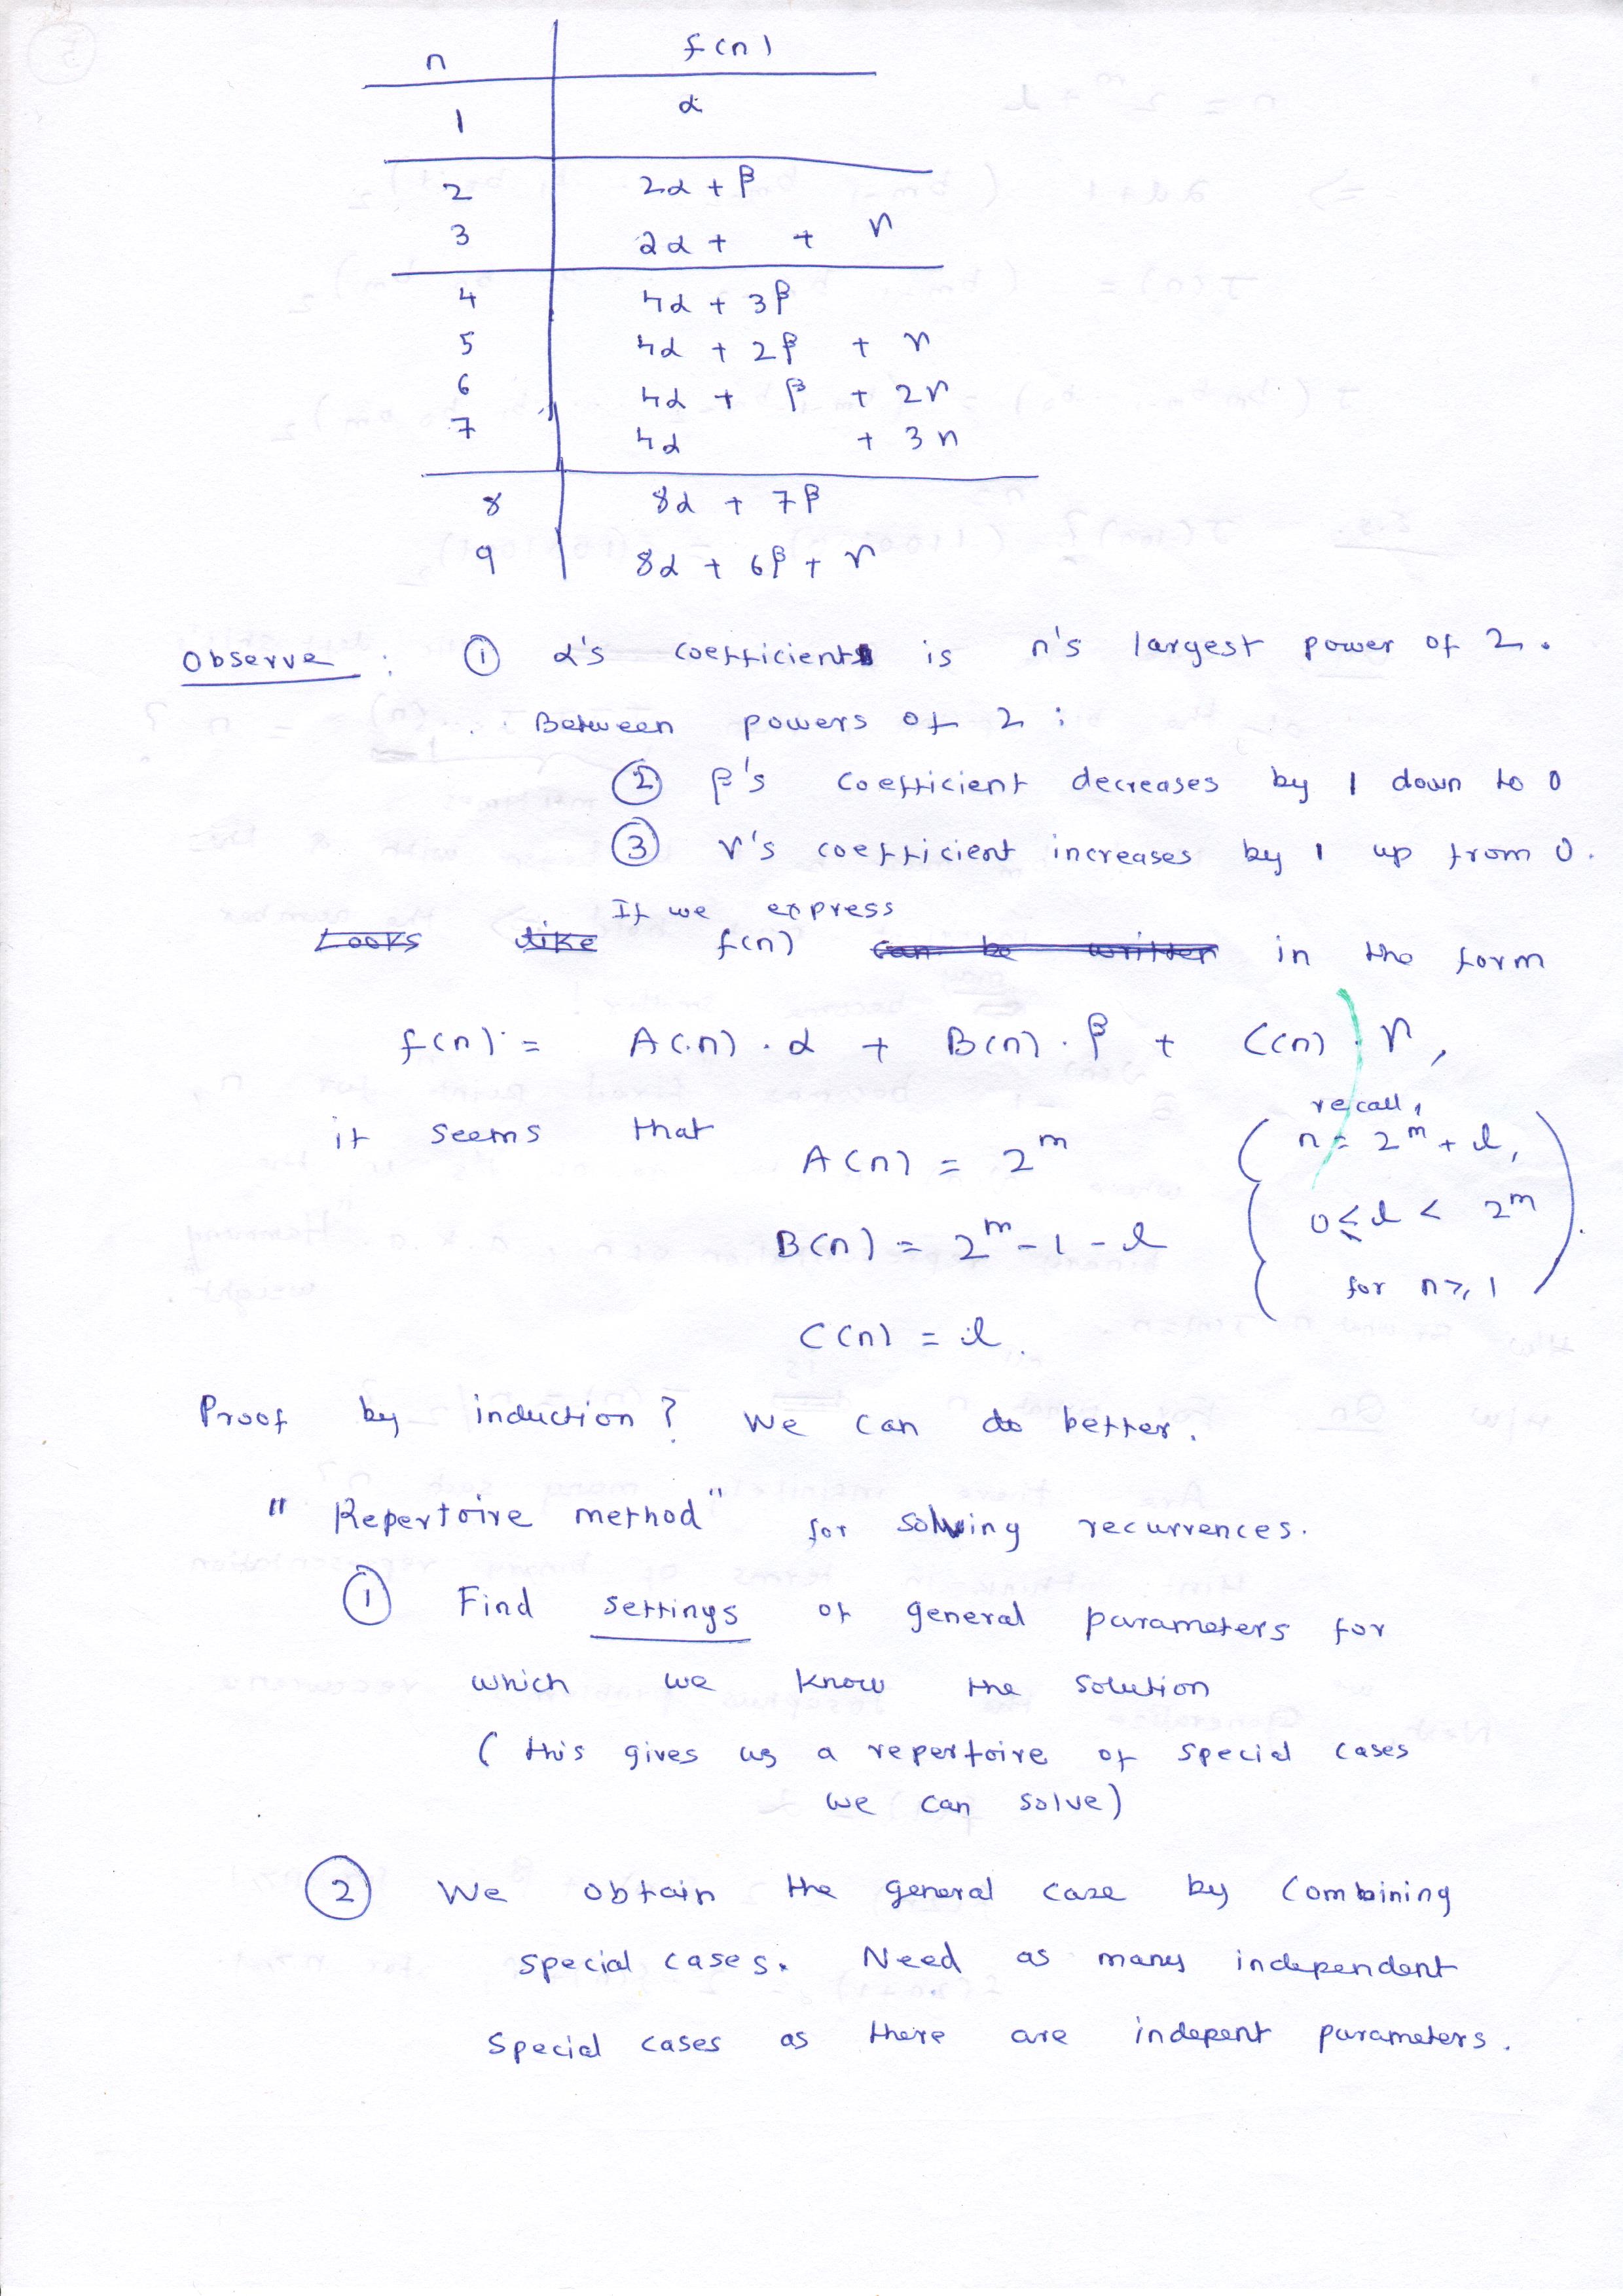 n f(n)
1 α
2 2α + β
3 2α + + γ
4 4α + 3β
5 4α + 2β + γ
6 4α + β + 2γ
7 4α + 3γ
8 8α + 7β
9 8α + 6β + γ
Observe : ① α's coefficient is n's largest power of 2.
Between powers of 2 :
② β's coefficient decreases by 1 down to 0
③ γ's coefficient increases by 1 up from 0.
If we express
Looks like f(n) can be written in the form
f(n) = A(n) . α + B(n) . β + C(n) . γ,
it seems that
recall,
A(n) = 2^m ( n = 2^m + l,
B(n) = 2^m - 1 - l 0 ≤ l < 2^m
for n ≥ 1 ).
C(n) = l.
Proof by induction? We can do better.
"Repertoire method" for solving recurrences.
① Find settings of general parameters for
which we know the solution
( this gives us a repertoire of special cases
we can solve)
② We obtain the general case by combining
special cases. Need as many independent
special cases as there are indepent parameters.